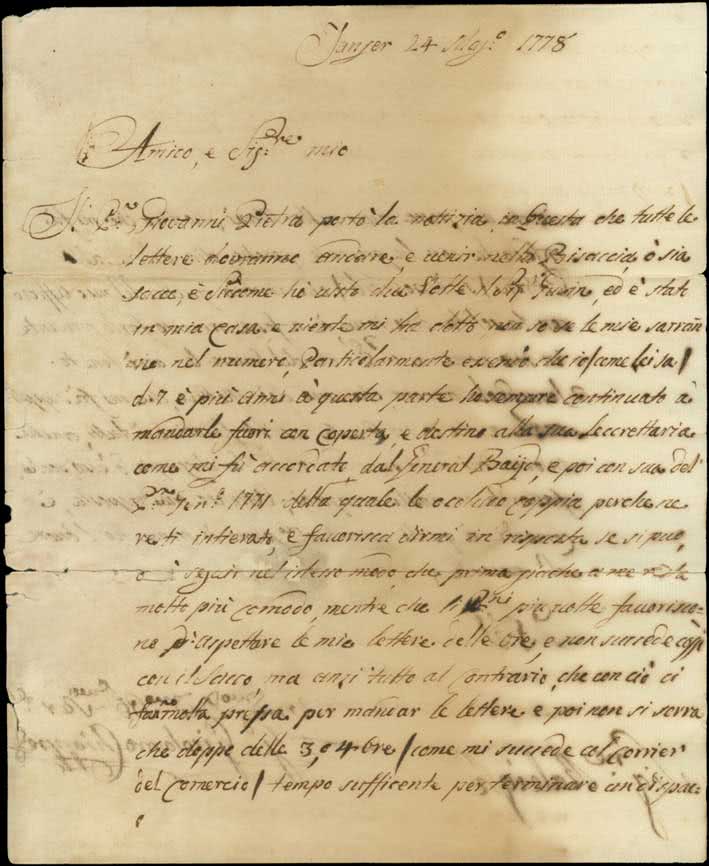 Tanger 24 1778
Amico, e Sig.re mio
Il Giovanni Pietra portò la notizia, in questa che tutte le
lettere dovranno andare, e venir nella Bisaccia, ò sia
sacco, è siccome hò visto due volte il ed è stato
in mia Casa e niente mi ha detto non so se le mie sarran
nel numero, Particolarmente essendo che io / come lei sa /
d. 7 è più anni à questa parte ho sempre continuato à
mandarle fuori con coperta, e destino alla sua Seccrettaria
come mi fù accordato dal General e poi con sua del
1771 della quale le coppia perche ne
resti intierato, e favorisca dirmi in risposta se si può,
ò è seguir nel istesso modo che prima poiche a me resta
molto più comodo, mentre che li più volte favorisco=
no p. aspettare le mie lettere delle Ore, e non succede così
con il Sacco, ma anzi tutto al contrario, che con ciò ci
molta pressa per mandar le lettere e poi non si serra
che doppo delle 3, o 4 Ore / come mi succede col Corrier
del Comercio / tempo sufficente per terminare un dispac=